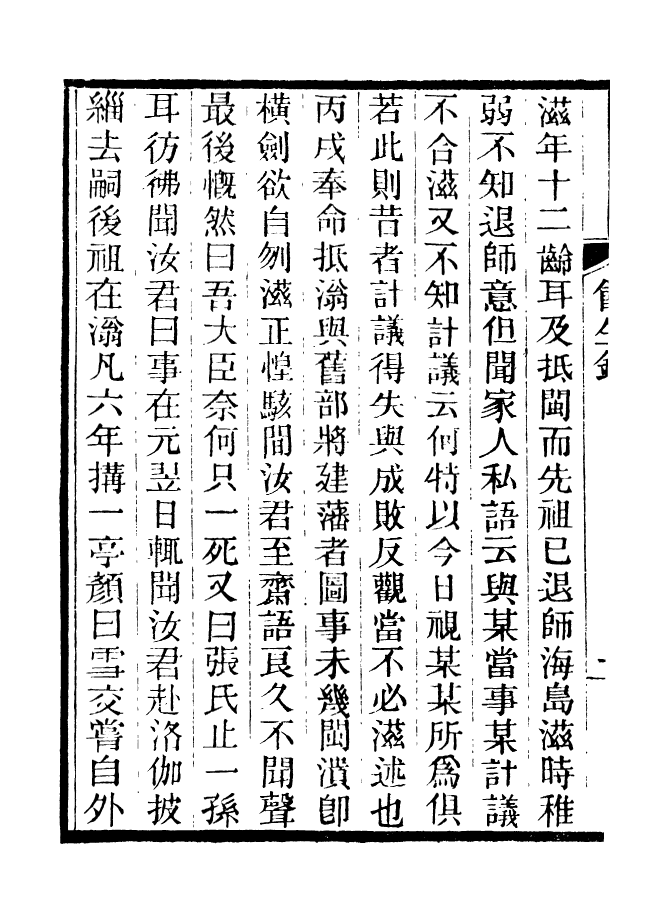 滋年十二齡耳及抵閩而先祖已退師海島滋時稚
弱不知退師意但聞家人私語云與某當事某計議
不合滋又不知計議云何特以今日視某某所爲俱
若此則昔者計議得失與成敗反觀當不必滋述也
丙戌奉命抵滃與舊部將建藩者圖事未幾閩潰卽
橫劍欲自刎滋正惶駭間汝君至齋語良久不聞聲
最後慨然曰吾大臣奈何只一死又曰張氏止一孫
耳彷彿聞汝君曰事在元翌日輒聞汝君赴洛伽披
緇去嗣後祖在滃凡六年搆一亭顏曰雪交嘗自外